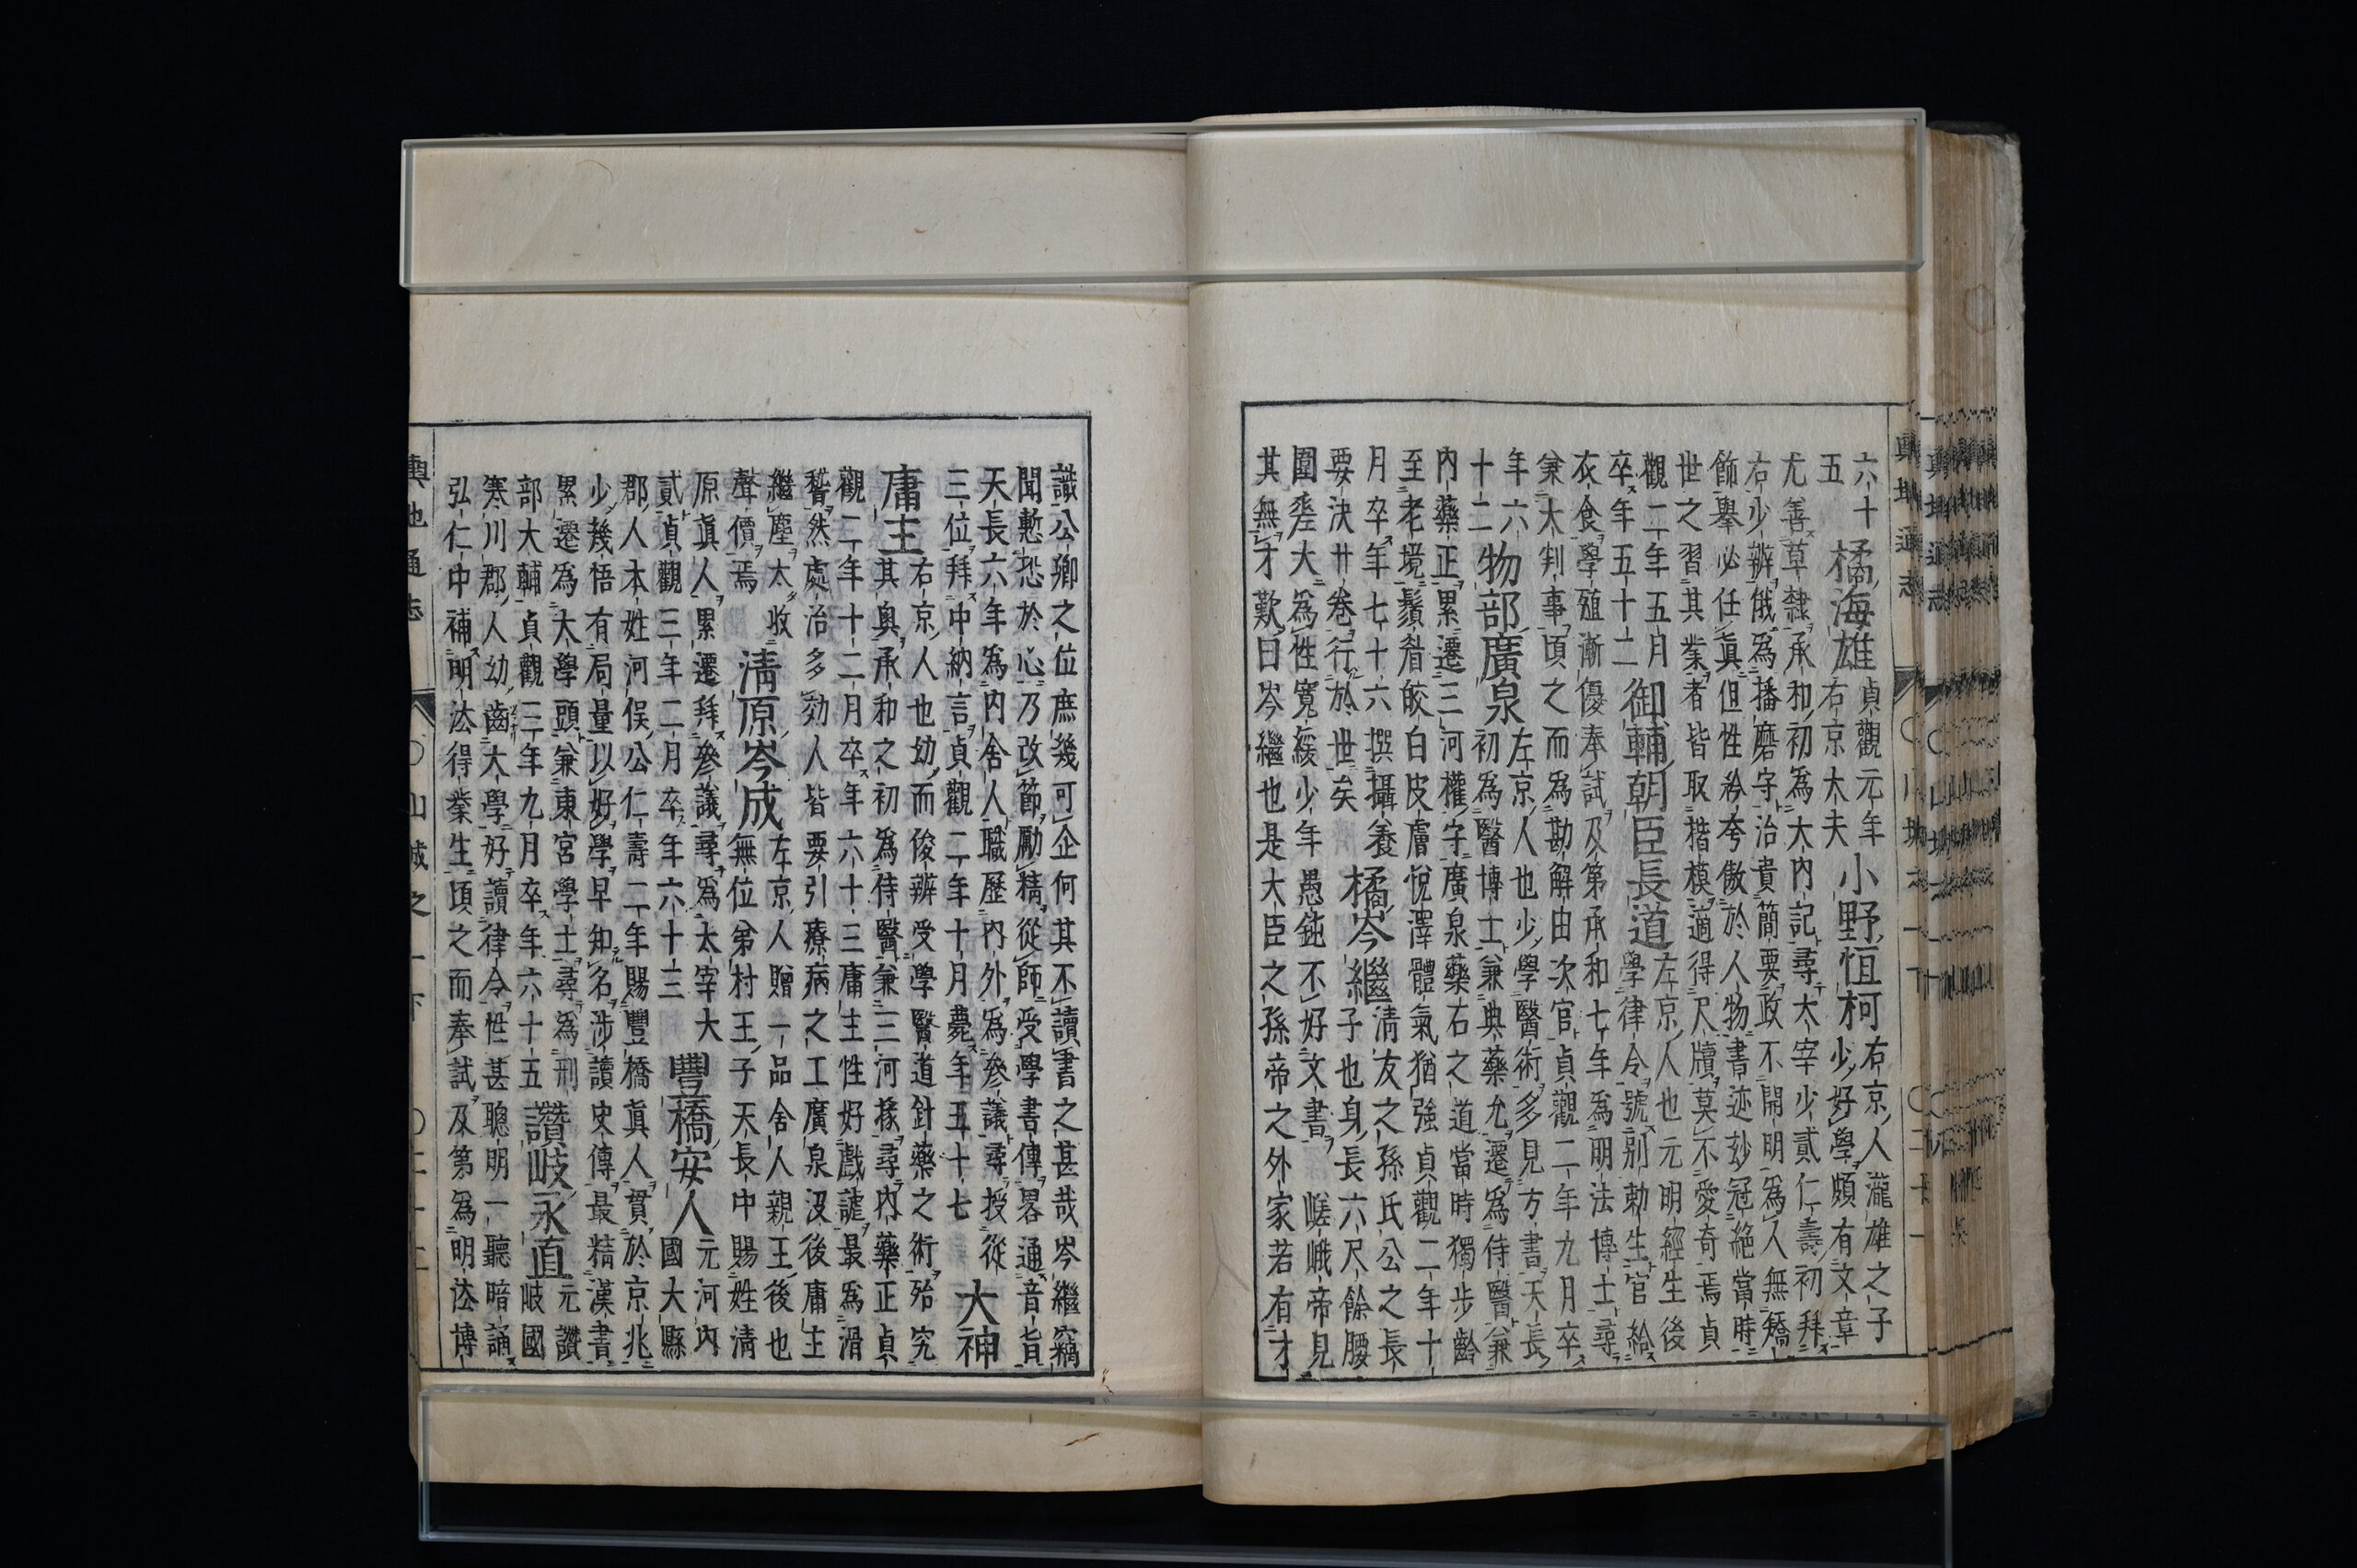 六十
五
橘海雄
貞觀元年
右京大夫
小野恒柯
右京人瀧雄之子
少好學頗有文章
尤善草隸承和初為大內記尋大宰少貳仁壽初拜
右少辨俄為播磨守治貴簡要政不開明為人無矯
飾擧必任眞但性矜夸傲於人物書迹玅冠絕當時
世之習其業者皆取揩模適得尺牘莫不愛奇焉貞
觀二年五月
卒年五十二
御輔朝臣長道
左京人也元明經生後
學律令號別勅生官給
衣食學殖漸優奉試及第承和七年為明法博士尋
兼大判事頃之而為勘解由次官貞觀二年九月卒
年六
十二
物部廣泉
左京人也少學醫術多見方書天長
初為醫博士兼典藥允遷為侍醫兼
內藥正累遷三河權守廣泉藥石之道當時獨步齡
至老境鬚眉皎白皮膚悅澤體氣猶強貞觀二年十
月卒年七十六撰攝養
要決廿卷行於世矣
橘岑繼
清友之孫氏公之長
子也身長六尺餘腰
圍差大為性寬緩少年愚鈍不好文書嵯峨帝見
其無才歎曰岑繼也是大臣之孫帝之外家若有才
識公卿之位庶幾可企何其不讀書之甚哉岑繼竊
聞慙恐於心乃改節勵精從師受學書傳畧通音旨
天長六年為內舍人職歷內外為參議尋授從
三位拜中納言貞觀二年十月薨年五十七
大神
庸主
右京人也幼而俊辨受學醫道針藥之術殆究
其奧承和之初為侍醫兼三河掾尋內藥正貞
觀二年十二月卒年六十三庸主性好戲謔最為滑
稽然處治多効人皆要引療病之工廣泉沒後庸主
繼塵太收
聲價焉
清原岑成
左京人贈一品舍人親王後也
無位弟村王子天長中賜姓清
原眞人累遷拜參議尋為太宰大
貳貞觀三年二月卒年六十三
豐橋安人
元河內
國大縣
郡人本姓河俣公仁壽二年賜豐橋眞人貫於京兆
少幾悟有局量以好學早知名涉讀史傳最精漢書
累遷為大學頭兼東宮學士尋為刑
部大輔貞觀三年九月卒年六十五
讚岐永直
元讚
岐國
寒川郡人幼齒大學好讀律令性甚聰明一聽暗誦
弘仁中補明法得業生頃之而奉試及第為明法博
輿地通志
○山城之一下